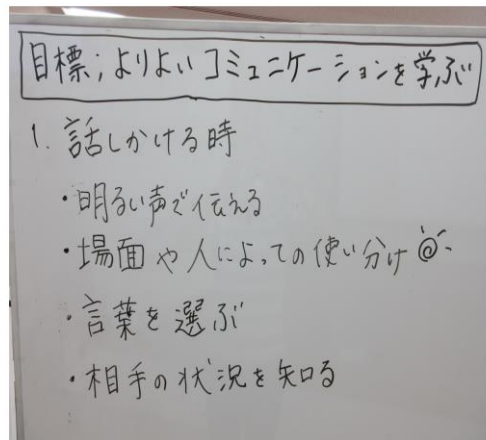 目標；よりよいコミュニケーションを学ぶ
1. 話しかける時
・明るい声で伝える
・場面や人によっての使い分け
・言葉を選ぶ
・相手の状況を知る